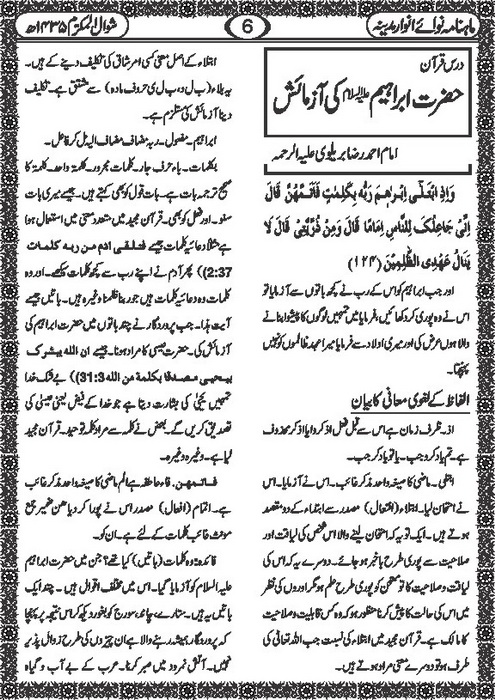 ماہنامہ نوائے انوار مدینہ
6
شوال المکرم ۱۴۳۵ھ
درس قرآن
حضرت ابراہیم علیہ السلام کی آزمائش
امام احمد رضا بریلوی علیہ الرحمہ
وَاِذِ ابْتَلٰٓی اِبْرٰهٖمَ رَبُّهٗ بِكَلِمٰتٍ فَاَتَمَّهُنَّ قَالَ
اِنِّیْ جَاعِلُكَ لِلنَّاسِ اِمَامًا قَالَ وَمِنْ ذُرِّیَّتِیْ قَالَ لَا
یَنَالُ عَهْدِی الظّٰلِمِیْنَ (۱۲۴)
اور جب ابراہیم کو اس کے رب نے کچھ باتوں سے آزمایا تو
اس نے وہ پوری کر دکھائیں، فرمایا میں تمہیں لوگوں کا پیشوا بنانے
والا ہوں عرض کی اور میری اولاد سے فرمایا میرا عہد ظالموں کو نہیں
پہنچتا۔
الفاظ کے لغوی معانی کا بیان
اذ۔ ظرف زمان ہے اس سے قبل فعل اذکر و یا اذکر محذوف
ہے۔ تم یاد کرو جب۔ یا تو یاد کر جب۔
ابتلی۔ ماضی کا صیغہ واحد مذکر غائب۔ اس نے آزمایا۔ اس
نے امتحان لیا۔ ابتلاء (افتعال) مصدر سے ابتداء کے دو مقصد
ہوتے ہیں۔ ایک تو یہ کہ امتحان لینے والا اس شخص کی لیاقت اور
صلاحیت سے پوری طرح باخبر ہو جائے۔ دوسرے یہ کہ اس کی
لیاقت و صلاحیت کا تو ممتحن کو پوری طرح علم ہو مگر اوروں کی نظر
میں اس کی حالت کا پیش کرنا منظور ہو کہ وہ کس قابلیت و صلاحیت
کا مالک ہے۔ قرآن مجید میں ابتلاء کی نسبت جب اللہ تعالی کی
طرف ہو تو دوسرے معنی مراد ہوتے ہیں۔
ابتلاء کے اصل معنی کسی امر شاق کی تکلیف دینے کے ہیں۔
یہ بلاء (ب ل و، ب ل ی حروف مادہ) سے مشتق ہے۔ تکلیف
دینا آزمائش کی مستلزم ہے۔
ابراہیم۔ مفعول۔ ربہ مضاف مضاف الیہ مل کر فاعل۔
بکلمات۔ باء حرف جار۔ کلمات مجرور۔ کلمۃ واحد۔ کلمۃ کا
صحیح ترجمہ بات ہے۔ بات قول کو بھی کہتے ہیں۔ جیسے میری بات
سنو۔ اور فعل کو بھی۔ قرآن مجید میں متعدد معنی میں استعمال ہوا
ہے مثلا دعائیہ کلمات جیسے فتلقی آدم من ربه کلمات
2:37)) پھر آدم نے اپنے رب سے کچھ کلمات سیکھے۔ اور وہ
کلمات وہ دعائیہ کلمات ہیں جو ربنا ظلمنا وغیرہ ہیں۔ باتیں جیسے
آیت ہذا۔ جب پروردگار نے چند باتوں میں حضرت ابراہیم کی
آزمائش کی۔ حضرت عیسی کا مراد ہونا۔ جیسے ان اللہ یبشرک
بیحیی مصدقا بکلمۃ من اللہ 3:31)) بے شک خدا
تمہیں یحییٰ کی بشارت دیتا ہے جو خدا کے فیض یعنی عیسیٰ کی
تصدیق کریں گے۔ بعض نے کلمہ سے مراد کلمہ توحید۔ قرآن مجید
لیا ہے۔ وغیرہ وغیرہ۔
فاتمهن۔ فاء عاطفہ ہے اتم ماضی کا صیغہ واحد مذکر غائب
ہے۔ اتمام (افعال) مصدر اس نے پورا کر دیا ھن ضمیر جمع
مونث غائب کلمات کے لئے ہے۔ ان کو۔
فائدہ: وہ کلمات (باتیں) کیا تھے؟ جن میں حضرت ابراہیم
علیہ السلام کو آزمایا گیا۔ اس میں مختلف اقوال ہیں۔ چند ایک
باتیں یہ ہیں۔ ستارے، چاند، سورج کو بغور دیکھ کر اس نتیجہ پر پہنچنا
کہ پروردگار ہمیشہ رہنے والا ہے ان چیزوں کی طرح زوال پذیر
نہیں۔ آتش نمرود میں صبر کرنا۔ عرب کے بے آب و گیاہ